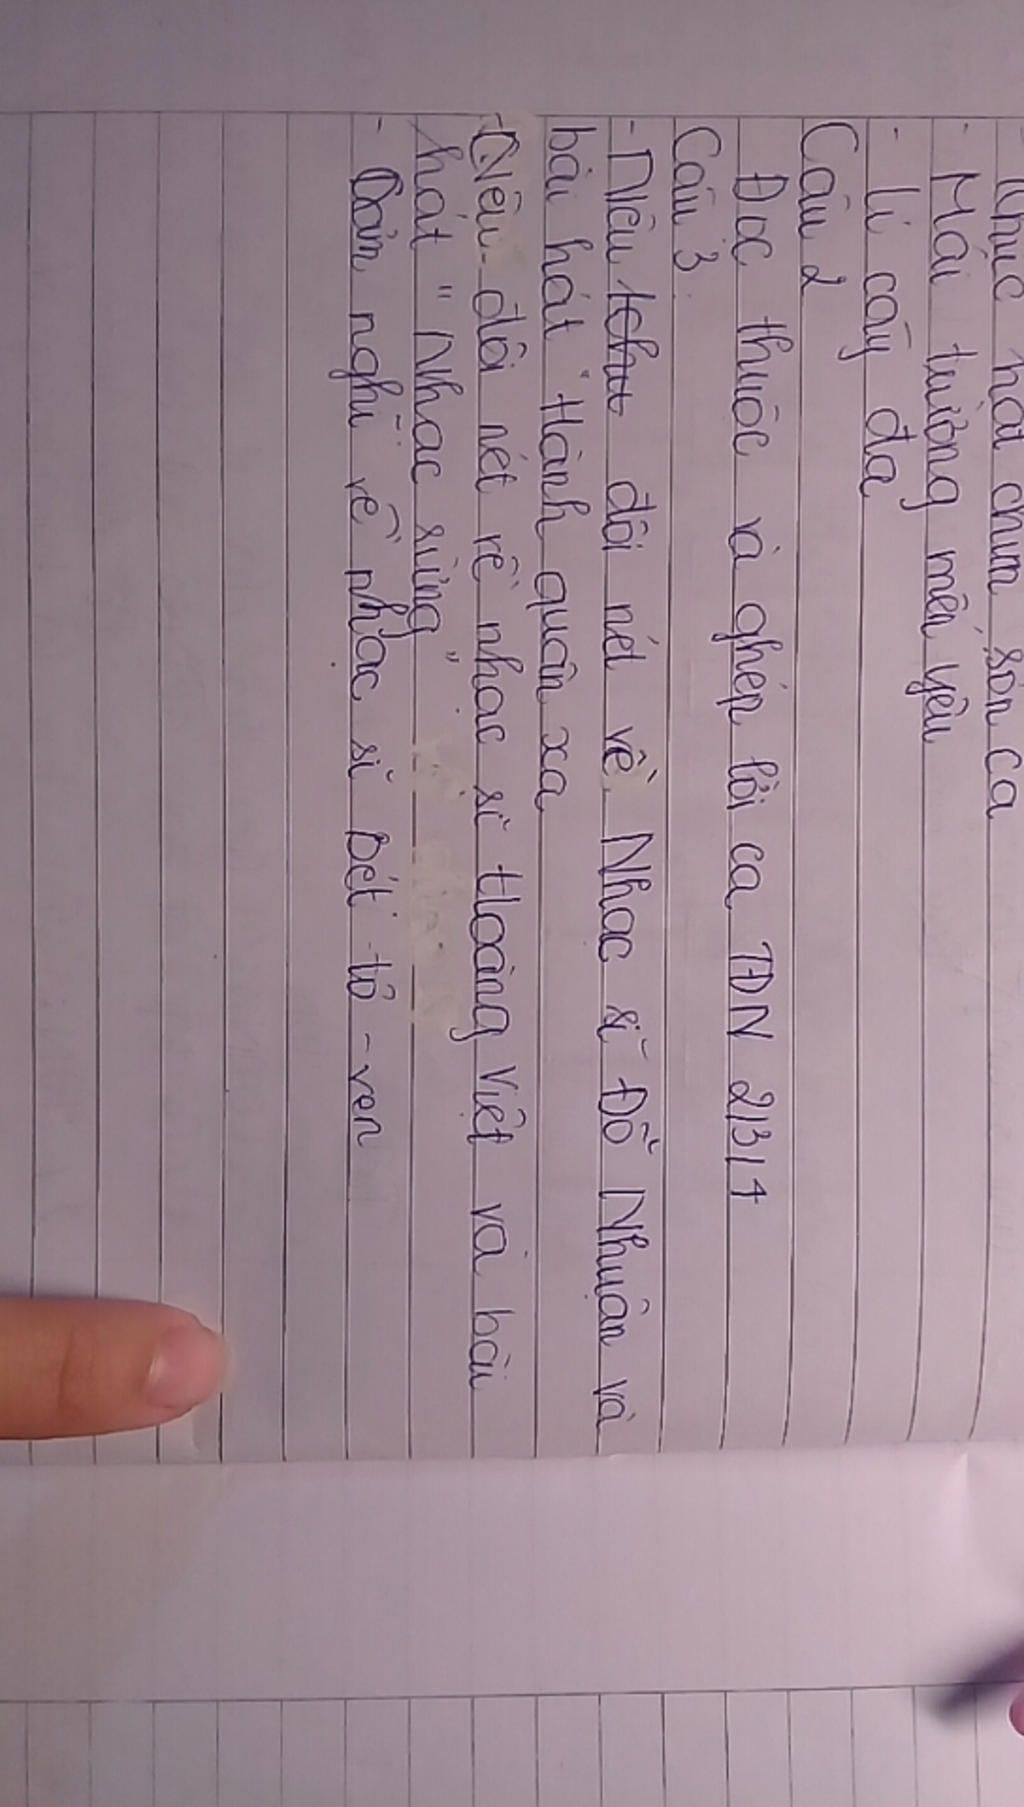 Khúc hát chim sơn ca
- Mái trường mến yêu
- Lí cây đa
Câu 2
Đọc thuộc và ghép lời ca TĐN 21314
Câu 3
- Nêu đôi nét về Nhạc sĩ Đỗ Nhuận và
bài hát "Hành quân xa
- Nêu đôi nét về nhạc sĩ Hoàng Việt và bài
hát "Nhạc rừng"
- Cảm nghĩ về nhạc sĩ Bét-tô-ven